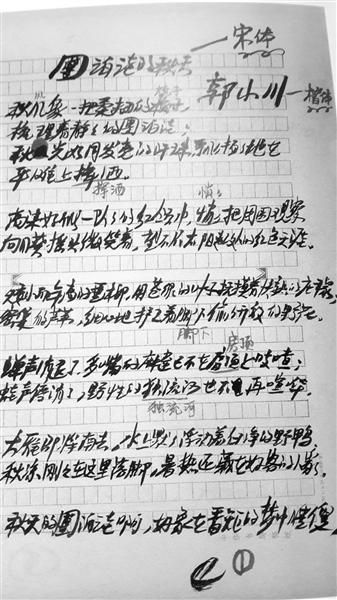 團泊洼的秋天
宋体
郭小川
楷体
秋风象一把柔韧的梳子
梳理着静静的團泊洼;
秋光如同发亮的汗珠,飘飘扬扬地在
平滩上挥洒。
挥洒
悄悄
高粱好似一队队的红领巾,悄悄把周围观察
向日葵摇头微笑着,望不尽太阳起处的红色天涯。
矮小而年高的垂柳,用苍绿的叶子抚摸着快熟的庄稼;
密集的芦苇,细心地护卫着脚下偷偷开放的野花。
脚下
房顶
蝉声消退了,多嘴的麻雀已不在房顶上吱喳;
蛙声停息了,野性的独流减河也不再喧哗。
独流河
大雁即将南去,水上默默浮动着白净的野鸭;
秋凉刚刚在这里落脚,暑热还藏在好客的人家。
秋天的團泊洼啊,好象在香甜的梦中睡傻
①